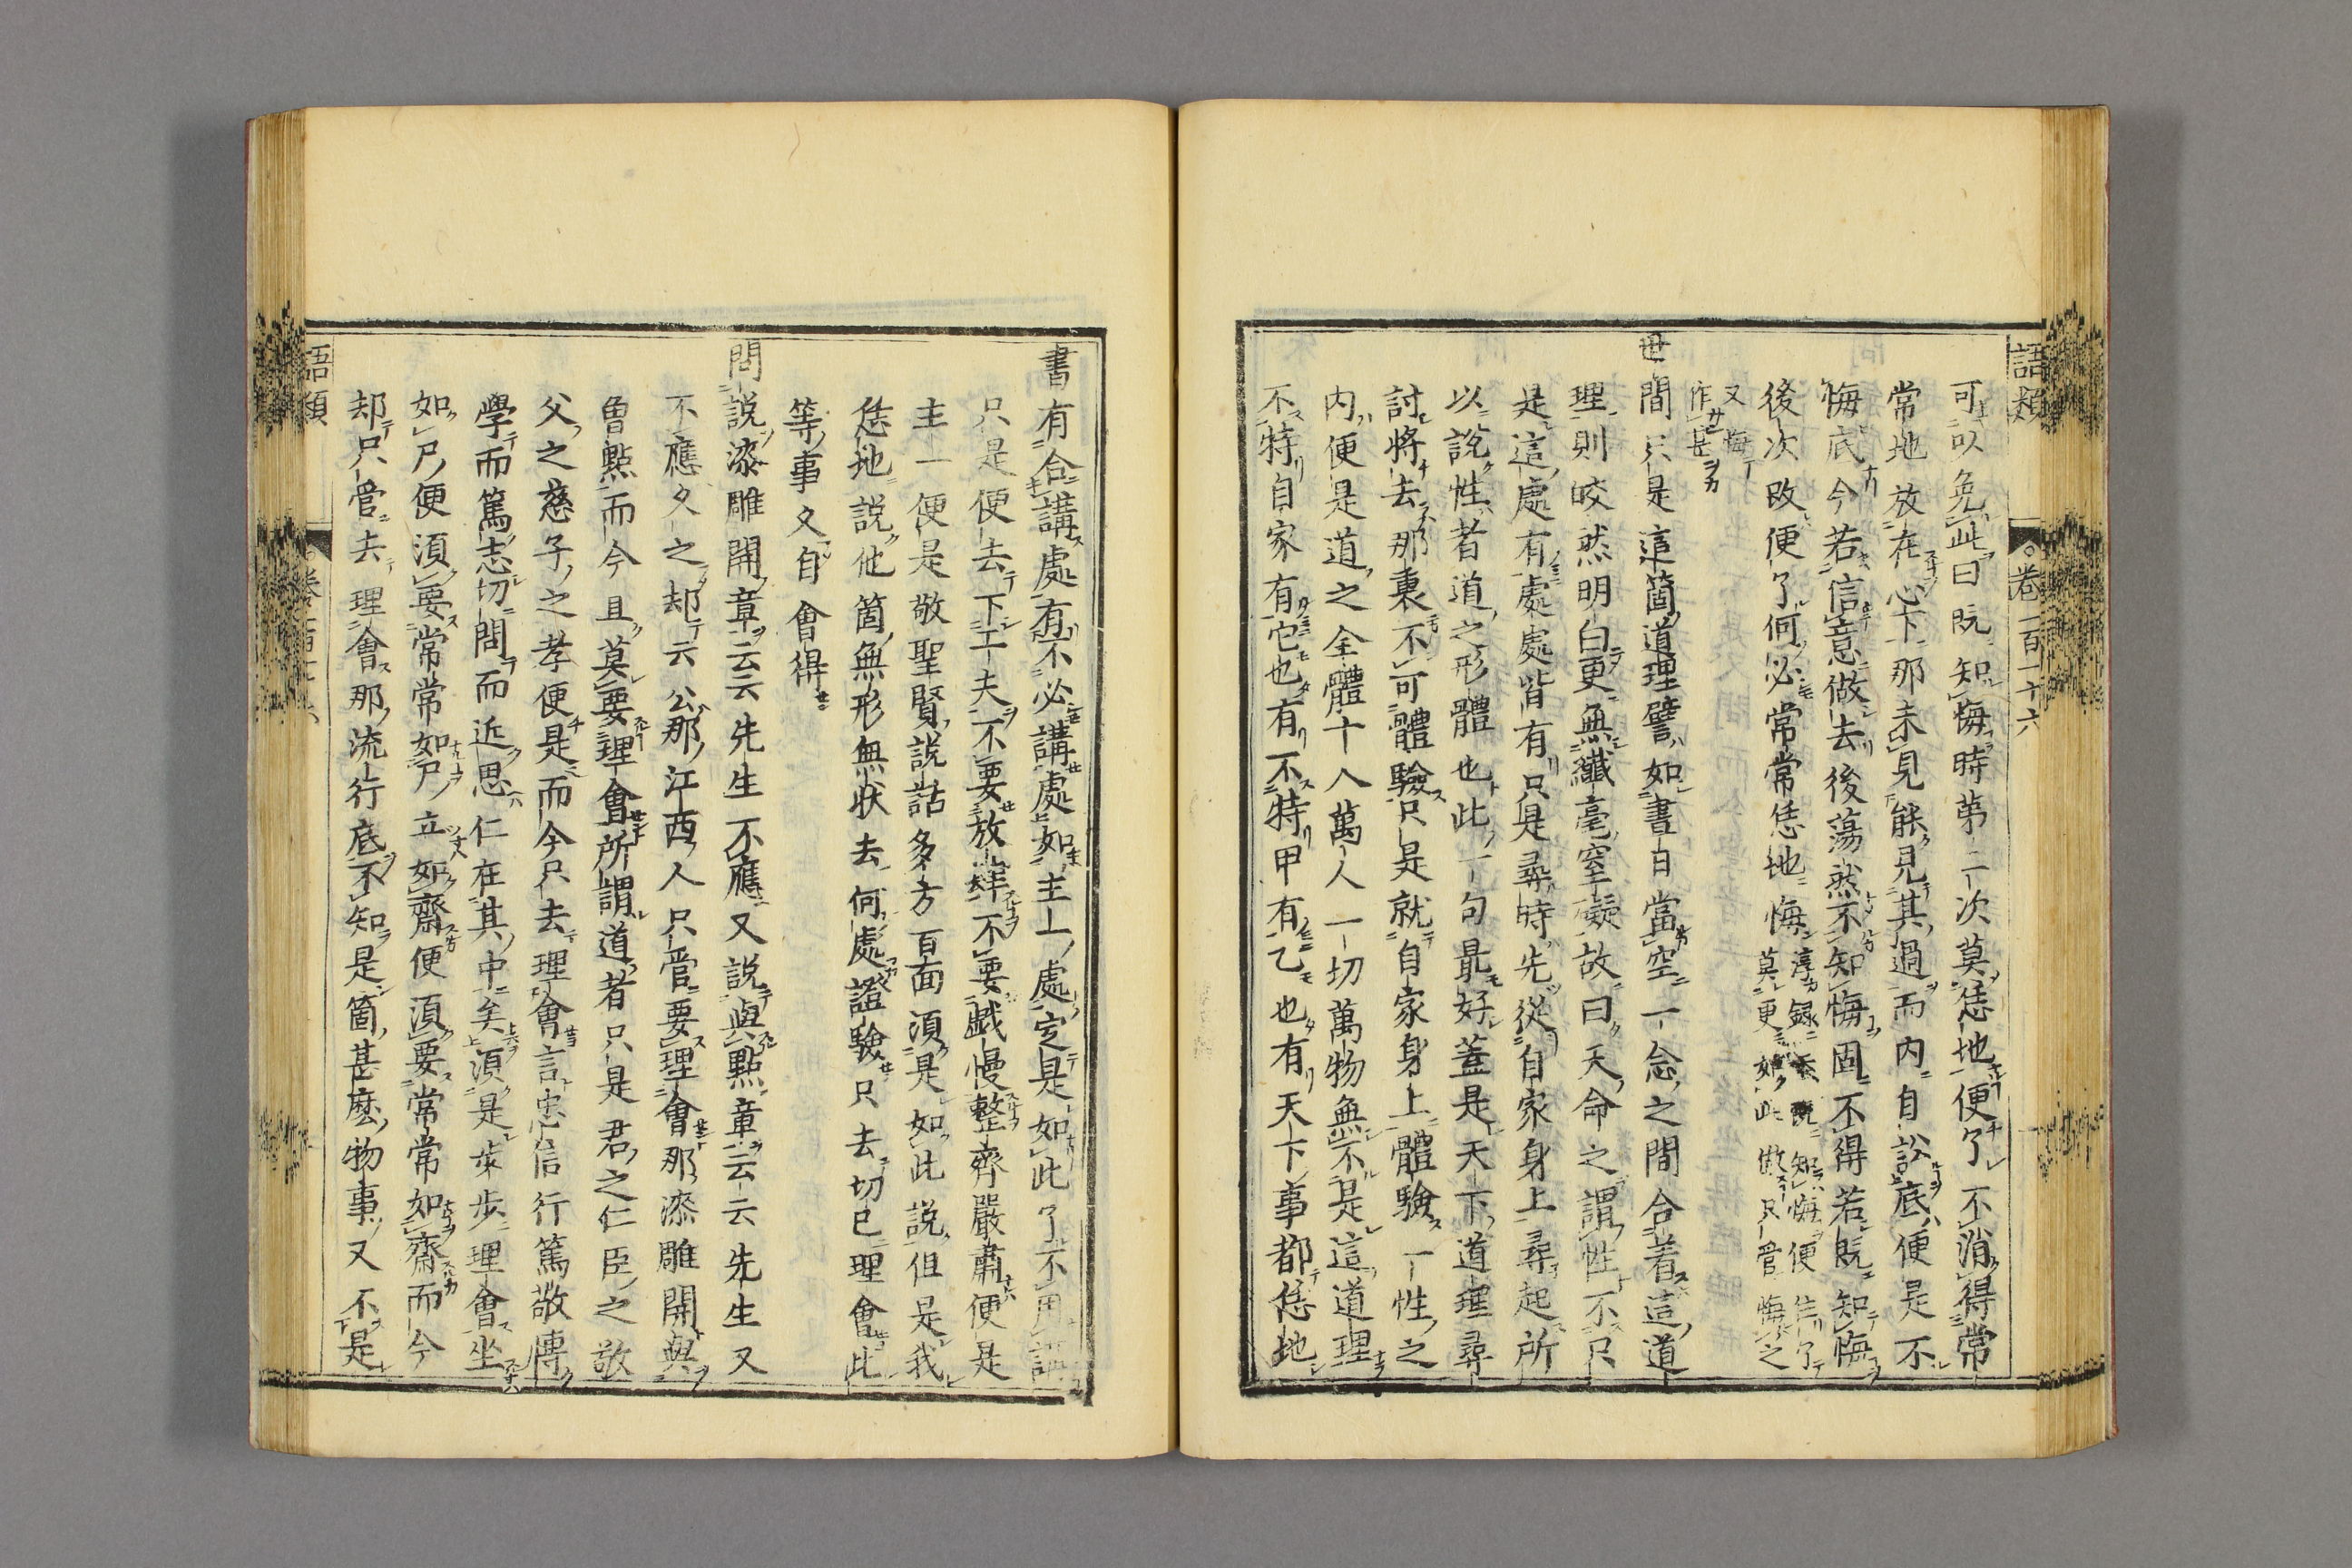 語類
卷一百一十六
可以免此曰既知悔時第二次莫恁地便了不消得常
常地放在心下那未見能見其過而内自訟底便是不
悔底今若信意做去後蕩然不知悔固不得若既知悔
後次改便了何必常常恁地悔
淳錄云既知悔便住了
莫更如此做只管悔之
又悔
作甚
世間只是這箇道理譬如晝日當空一念之間合着這道
理則皎然明白更無纖毫窒礙故曰天命之謂性不只
是這處有處處皆有只是尋時先從自家身上尋起所
以說性者道之形體也此一句最好蓋是天下道理尋
討將去那裏不可體驗只是就自家身上體驗一性之
内便是道之全體千人萬人一切萬物無不是這道理
不特自家有它也有不特甲有乙也有天下事都恁地
書有合講處有不必講處如主一處定是如此了不用講
只是便去下工夫不要放肆不要戲慢整齊嚴肅便是
主一便是敬聖賢說話多方百面須是如此說但是我
恁地說他箇無形無狀去何處證驗只去切己理會此
等事久自會得
問說漆雕開章云云先生不應又說與點章云云先生又
不應久之却云公那江西人只管要理會那漆雕開與
曾點而今且莫要理會所謂道者只是君之仁臣之敬
父之慈子之孝便是而今只去理會言忠信行篤敬博
學而篤志切問而近思仁在其中矣須是步步理會坐
如尸便須要常常如尸立如齋便須要常常如齋而今
却只管去理會那流行底不知是箇甚麼物事又不是
語類